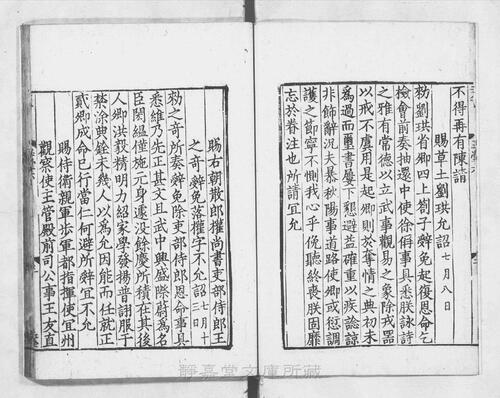 不得再有陳請
賜草土劉珙允詔七月八日
勑劉珙省卿四上劄子辭免起復恩命乞
檢會前奏抽還中使徐俱事具悉朕詠詩
之雅有常德以立武事觀易之象除戎器
以戒不虞用是起卿則於奪情之典初未
為過而璽書屢下懇避益確重以疾諗諒
非飾辭況夫暴秋陽事道路使卿或愆調
護之節寧不惻我心乎俛聽終喪朕固靡
忘於眷注也所請宜允
賜右朝散郎權尚書吏部侍郎王
之奇辭免落權字不允詔七月十三日
勑之奇所奏辭免除吏部侍郎恩命事具
悉維乃先正其文且武中興盛際蔚為名
臣閱緼僅施元身遽沒餘慶所積在其後
人卿洪毅精明力紹家學發揚昔詡服于
禁涂典銓未幾人以為允因能而任就正
貳卿成命已行當仁何避所辭宜不允
賜侍衛親軍步軍都指揮使宜州
觀察使主管殿前司公事王友直
靜嘉堂文庫所藏